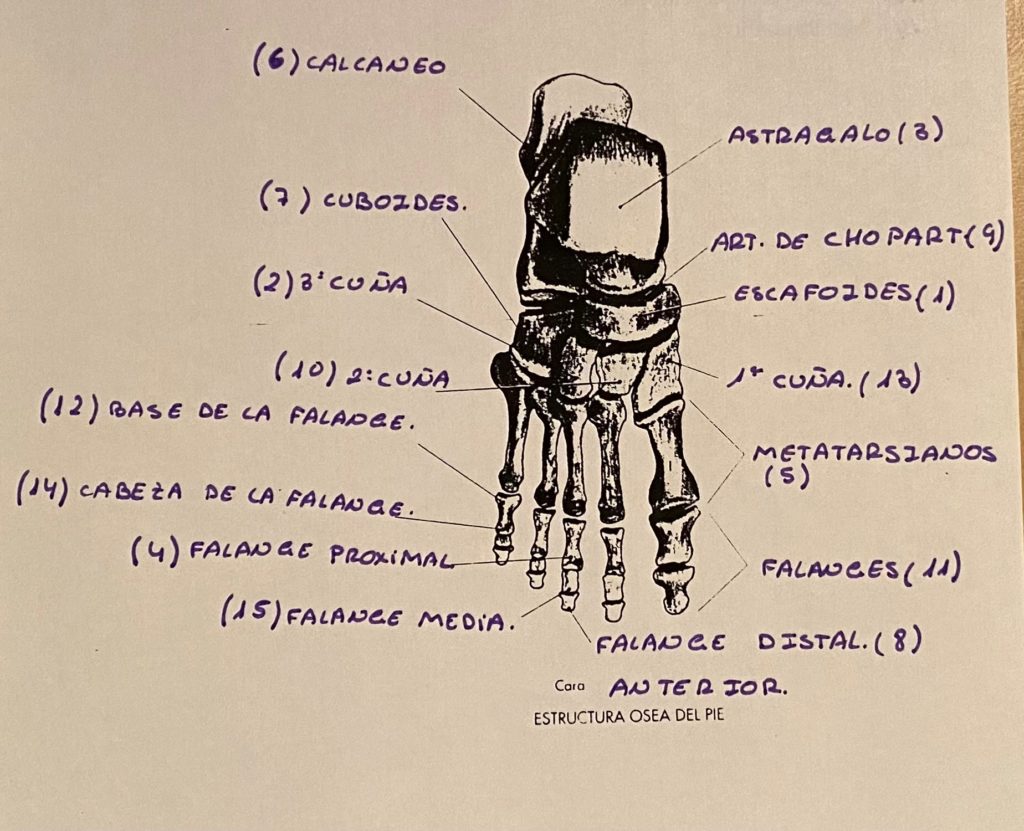 (6) CALCANEO
ASTRAGALO (3)
(7) CUBOIDES.
ART. DE CHOPART (9)
(2) 3ª CUÑA
ESCAFOIDES (1)
(10) 2ª CUÑA
1ª CUÑA. (13)
(12) BASE DE LA FALANGE.
METATARSIANOS
(5)
(14) CABEZA DE LA FALANGE.
(4) FALANGE PROXIMAL
FALANGES (11)
(15) FALANGE MEDIA.
FALANGE DISTAL. (8)
Cara ANTERIOR.
ESTRUCTURA OSEA DEL PIE